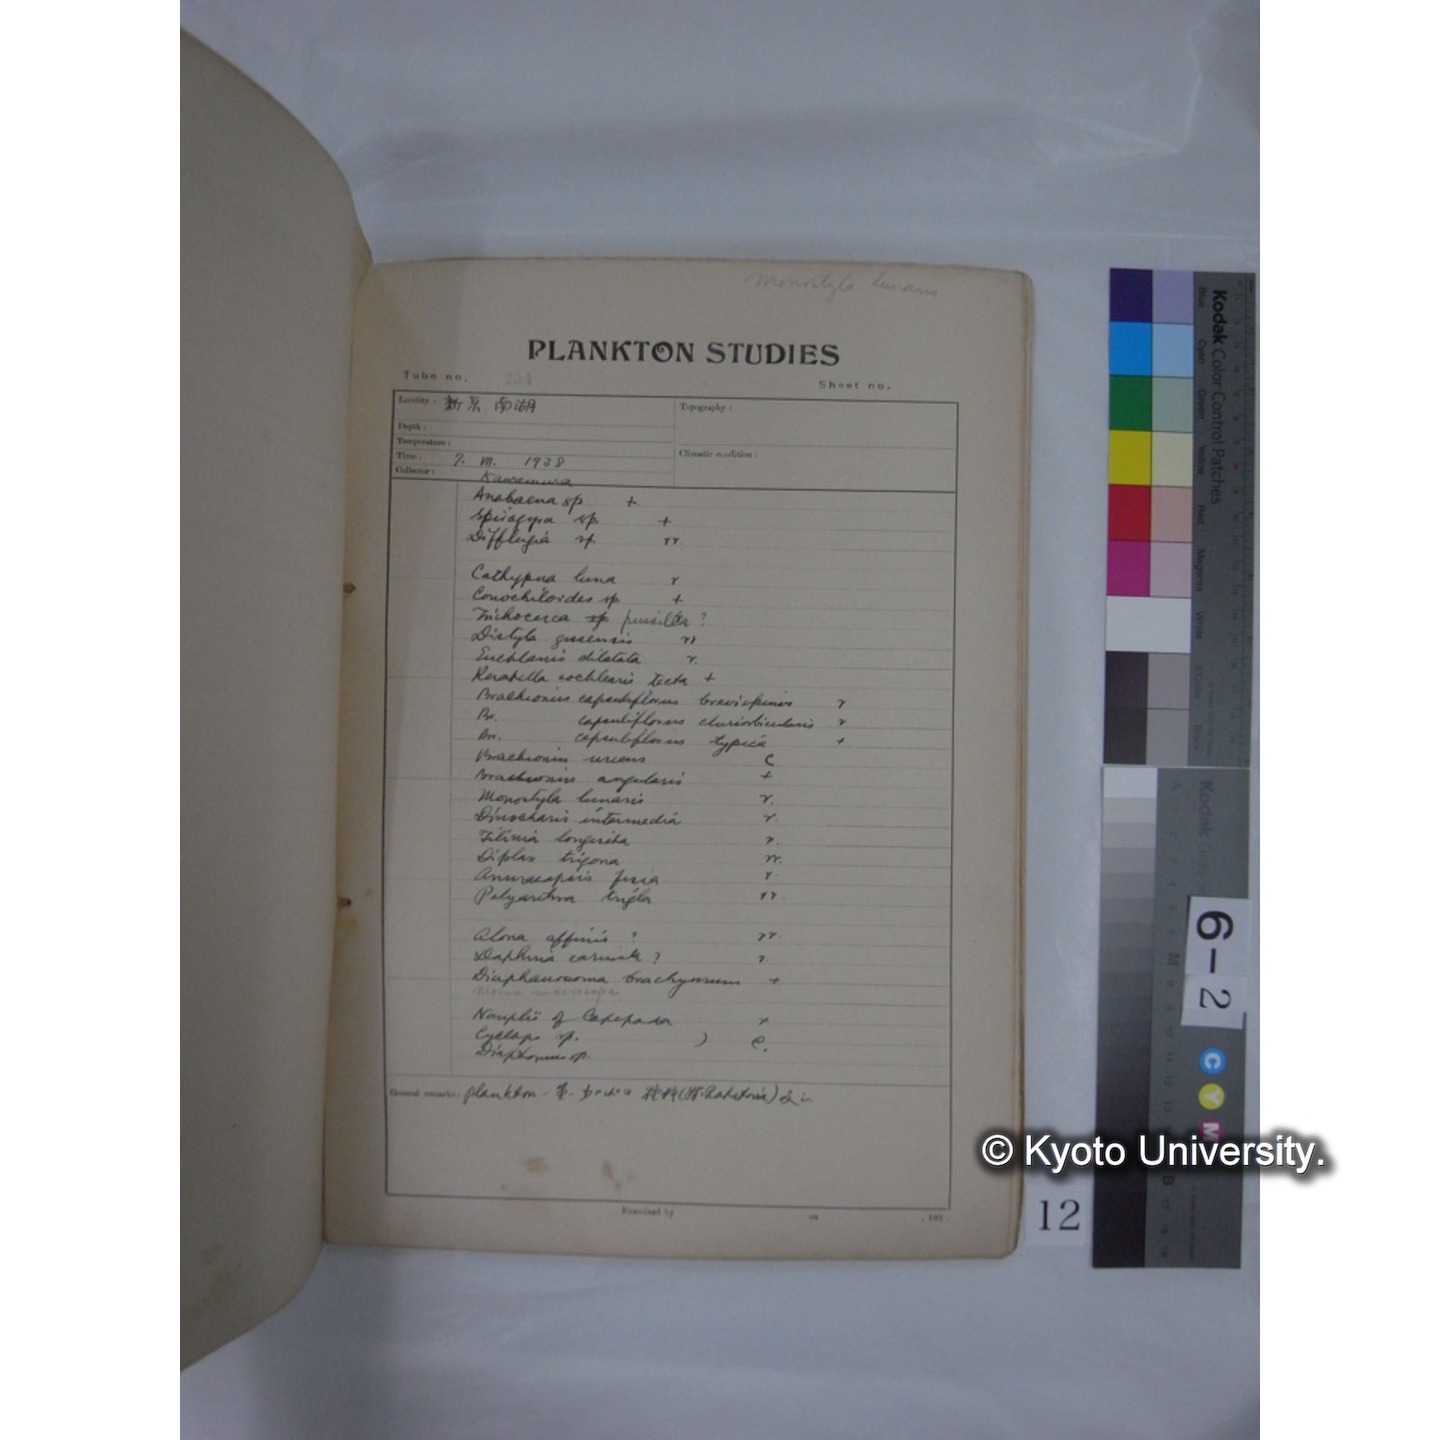 Monostyla lunaris
PLANKTON STUDIES
Tube no. 254
Sheet no.
Locality : 新京 南湖
Topography :
Depth :
Temperature :
Time : 7. VII. 1938
Climatic condition :
Collector : Kawamura
Anabaena sp. +
Spirogyra sp. +
Difflugia sp. rr.
Cathypna luna r
Conochiloides sp. +
Trichocerca sp pusilla ?
Distyla rr
Euchlanis dilatata r.
Keratella cochlearis tecta +
Brachionus capsuliflorus brevispinus r
Br. capsuliflorus r
Br. capsuliflorus typica +
Brachionus urceus C
Brachionus angularis +
Monostyla lunaris r.
Dinocharis intermedia r.
Filinia longiseta r.
Diplax trigona rr.
Anuraeopsis fissa r
Polyarthra trigla rr.
Alona affinis ? rr.
Daphnia ? r
Diaphanosoma brachyurum +
Nauplii of Copepoda +
Cyclops sp. ) C.
Diaptomus sp.
General remarks : plankton
Examined by
on
, 193 .
Kodak Color Control Patches
Blue Cyan Green Yellow Red Magenta White
Kodak
6-2
C
Y
M
12
© Kyoto University.